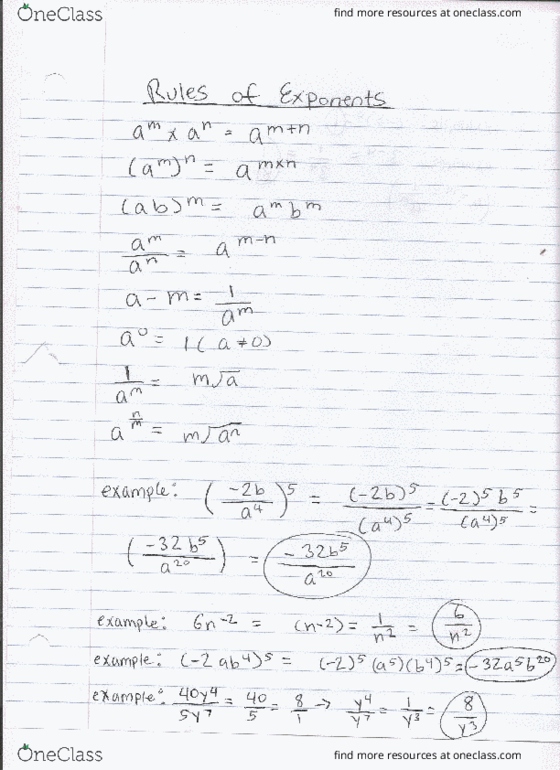 OneClass find more resources at oneclass.com
Rules of Exponents
a^m x a^n = a^m+n
(a^m)^n = a^m×n
(ab)^m = a^m b^m
a^m/a^n = a^m-n
a-m = 1/a^m
a^0 = 1 (a≠0)
1/a^m = m√a
a^n/m = m√a^n
example: (-2b/a^4)^5 = (-2b)^5/(a^4)^5 = (-2)^5 b^5/(a^4)^5 =
(-32b^5/a^20) = -32b^5/a^20
example: 6n^-2 = (n-2) = 1/n^2 = 6/n^2
example: (-2ab^4)^5 = (-2)^5 (a^5)(b^4)^5 = -32a^5b^20
example: 40y^4/5y^7 = 40/5 = 8/1 → y^4/y^7 = 1/y^3 = 8/y^3
OneClass find more resources at oneclass.com